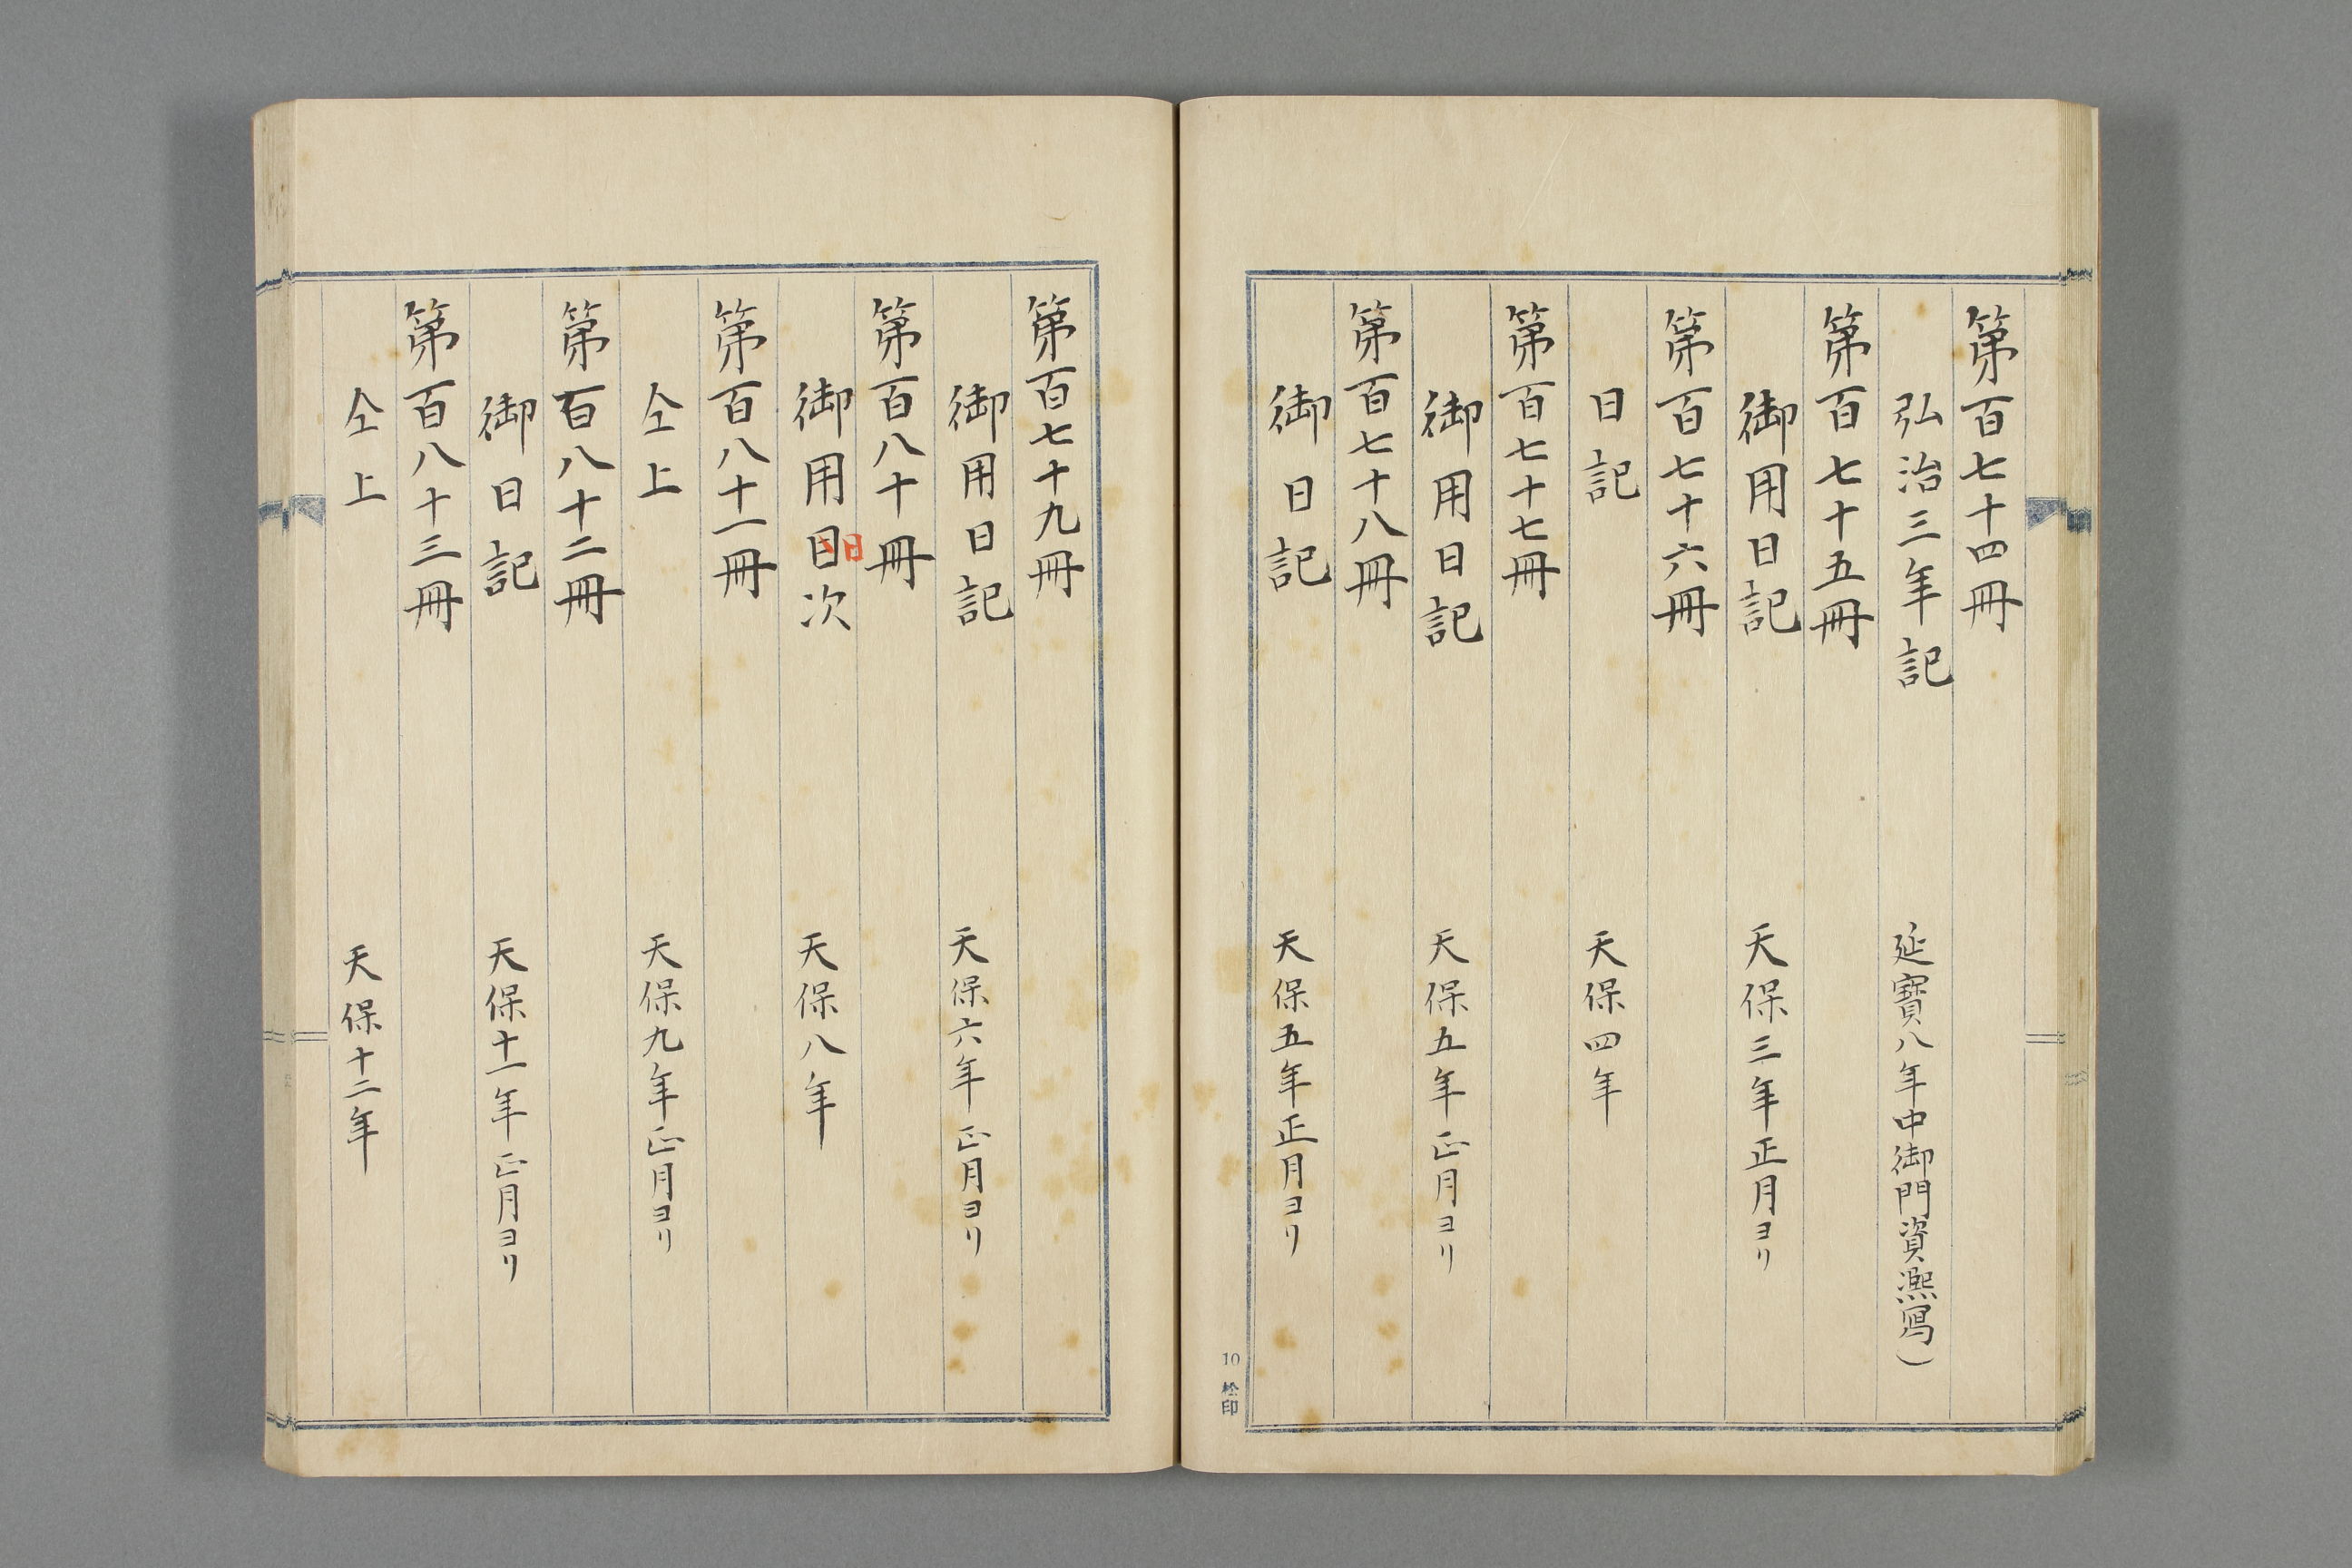 第百七十四冊
弘治三年記　延寶八年中御門資熈寫)
第百七十五冊
御用日記　天保三年正月ヨリ
第百七十六冊
日記　天保四年
第百七十七冊
御用日記　天保五年正月ヨリ
第百七十八冊
御日記　天保五年正月ヨリ
10 松印
第百七十九冊
御用日記　天保六年正月ヨリ
第百八十冊
御用目次　天保八年
日
第百八十一冊
仝上　天保九年正月ヨリ
第百八十二冊
御日記　天保十一年正月ヨリ
第百八十三冊
仝上　天保十二年